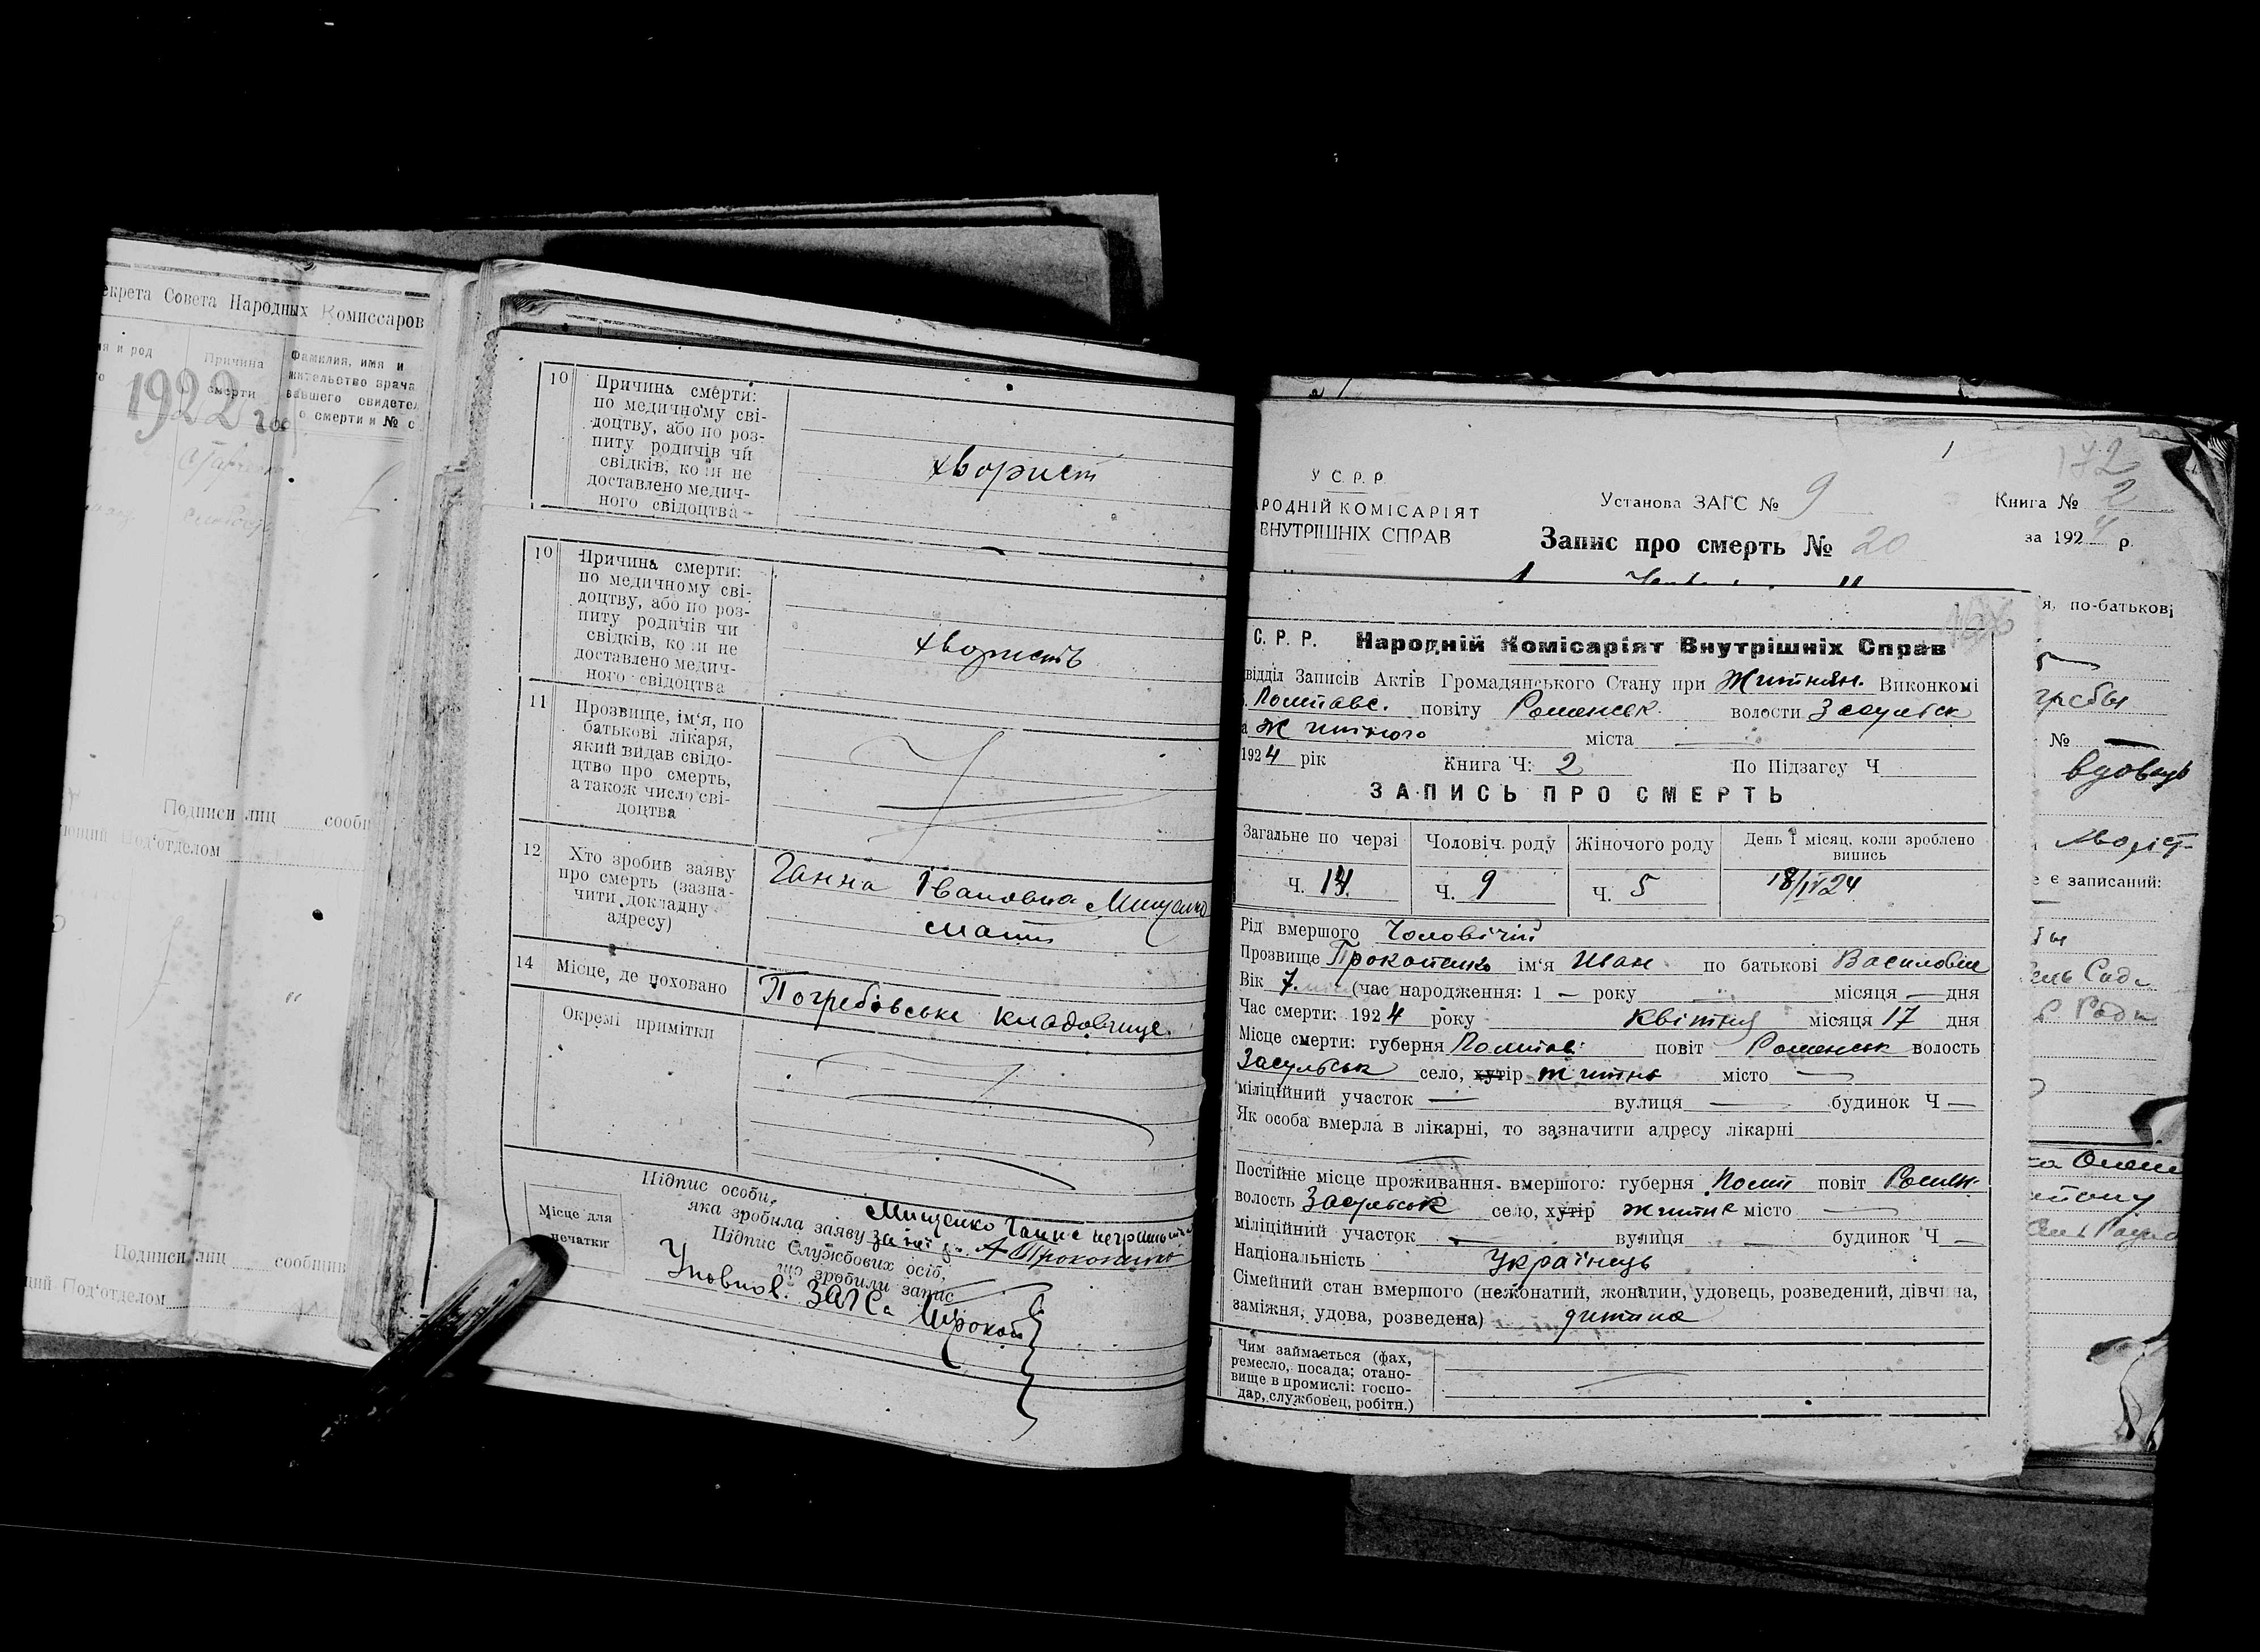 екрета Совета Народных Комиссаров
я и род
Причина
смерти
Фамилия, имя и
жительство врача
вавшего свидетел
о смерти и № с
1922 го
Подписи лиц сообщ
ющий Под'отделом
Подписи лиц сообщив
щий Под'отделом
10 Причина смерти:
по медичному сві-
доцтву, або по роз-
питу родичів чи
свідків, коли не
доставлено медич-
ного свідоцтва
хворист
10 Причина смерти:
по медичному сві-
доцтву, або по роз-
питу родичів чи
свідків, коли не
доставлено медич-
ного свідоцтва
хвористь
11 Прозвище, ім'я, по
батькові лікаря,
який видав свідо-
цтво про смерть,
а також число сві-
доцтва
12 Хто зробив заяву
про смерть (зазна-
чити докладну
адресу)
Ганна Івановна Мищенко
мати
14 Місце, де поховано Погребівське кладовище.
Окремі примітки
Місце для
печатки
Підпис особи,
яка зробила заяву Мищенко Ганна неграмотна
за неї А Прокопенко
Підпис Службових осіб,
що зробили запис
Уповнов. ЗАГСа
У С. Р. Р.
РОДНІЙ КОМІСАРІЯТ
ВНУТРІШНІХ СПРАВ
Установа ЗАГС № 9
Запис про смерть № 20
172
Книга № 2
за 1924 р.
я, по-батькові
С. Р. Р. Народній Комісаріят Внутрішніх Справ
відділ Записів Актів Громадянського Стану при Житнян. Виконкомі
Полтавс. повіту Роменськ волости Засульск
а Житного міста —
1924 рік Книга Ч: 2 По Підзагсу Ч
ЗАПИСЬ ПРО СМЕРТЬ
Загальне по черзі Чоловіч. роду Жіночого роду День і місяц, коли зроблено
випись
Ч. 14. Ч. 9 Ч. 5 18/IV 24
Рід вмершого Чоловічій
Прозвище Прокопенко ім'я Иван по батькові Василовіч
Вік 7. (час народження: 1 — року місяця — дня
Час смерти: 1924 року Квітня місяця 17 дня
Місце смерти: губерня Полтав: повіт Роменськ волость
Засульськ село, хутір Житнє місто —
міліційний участок — вулиця — будинок Ч —
Як особа вмерла в лікарні, то зазначити адресу лікарні
Постійне місце проживання вмершого: губерня Полт повіт Ромен
волость Засульськ село, хутір Житнє місто —
міліційний участок — вулиця — будинок Ч —
Національність Українець
Сімейний стан вмершого (нежонатий, жонатин, удовець, розведений, дівчина,
заміжня, удова, розведена) дитина
Чим займається (фах,
ремесло, посада; отано-
вище в промислі: госпо-
дар, службовец, робітн.)
№ —
вдовець
є записаний: